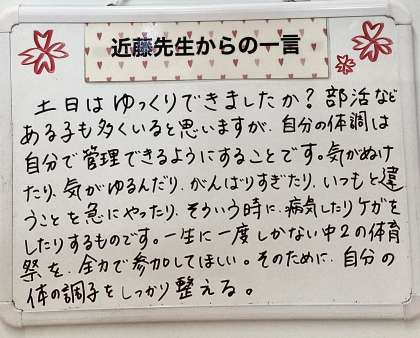 近藤先生からの一言
土日はゆっくりできましたか？部活など
ある子も多くいると思いますが、自分の体調は
自分で管理できるようにすることです。気がぬけ
たり、気がゆるんだり、がんばりすぎたり、いつもと違
うことを急にやったり、そういう時に、病気したりケガを
したりするものです。一生に一度しかない中2の体育
祭を、全力で参加してほしい。そのために、自分の
体の調子をしっかり整える。